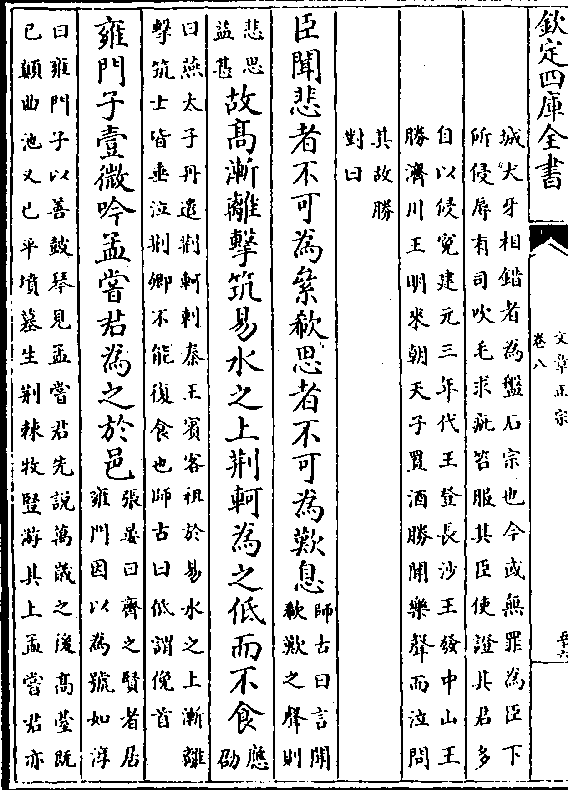 欽定四庫全書
文章正宗
卷八
城犬牙相錯者為盤石宗也今或無罪為臣下
所侵辱有司吹毛求疵笞服其臣使證其君多
自以侵寃建元三年代王登長沙王發中山王
勝濟川王明來朝天子置酒勝聞樂聲而泣問
其故勝
對曰
臣聞悲者不可為絫欷思者不可為歎息
師古曰言聞
欷歎之聲則
悲思
益甚
故髙漸離擊筑易水之上荆軻為之低而不食
應
劭
曰燕太子丹遣荆軻刺秦王賓客祖於易水之上漸離
擊筑士皆垂泣荆卿不能復食也師古曰低謂俛首
雍門子壹微吟孟嘗君為之於邑
張晏曰齊之賢者居
雍門因以為號如淳
曰雍門子以善鼓琴見孟嘗君先説萬歳之後髙臺既
已顛曲池又已平墳墓生荆棘牧豎游其上孟嘗君亦